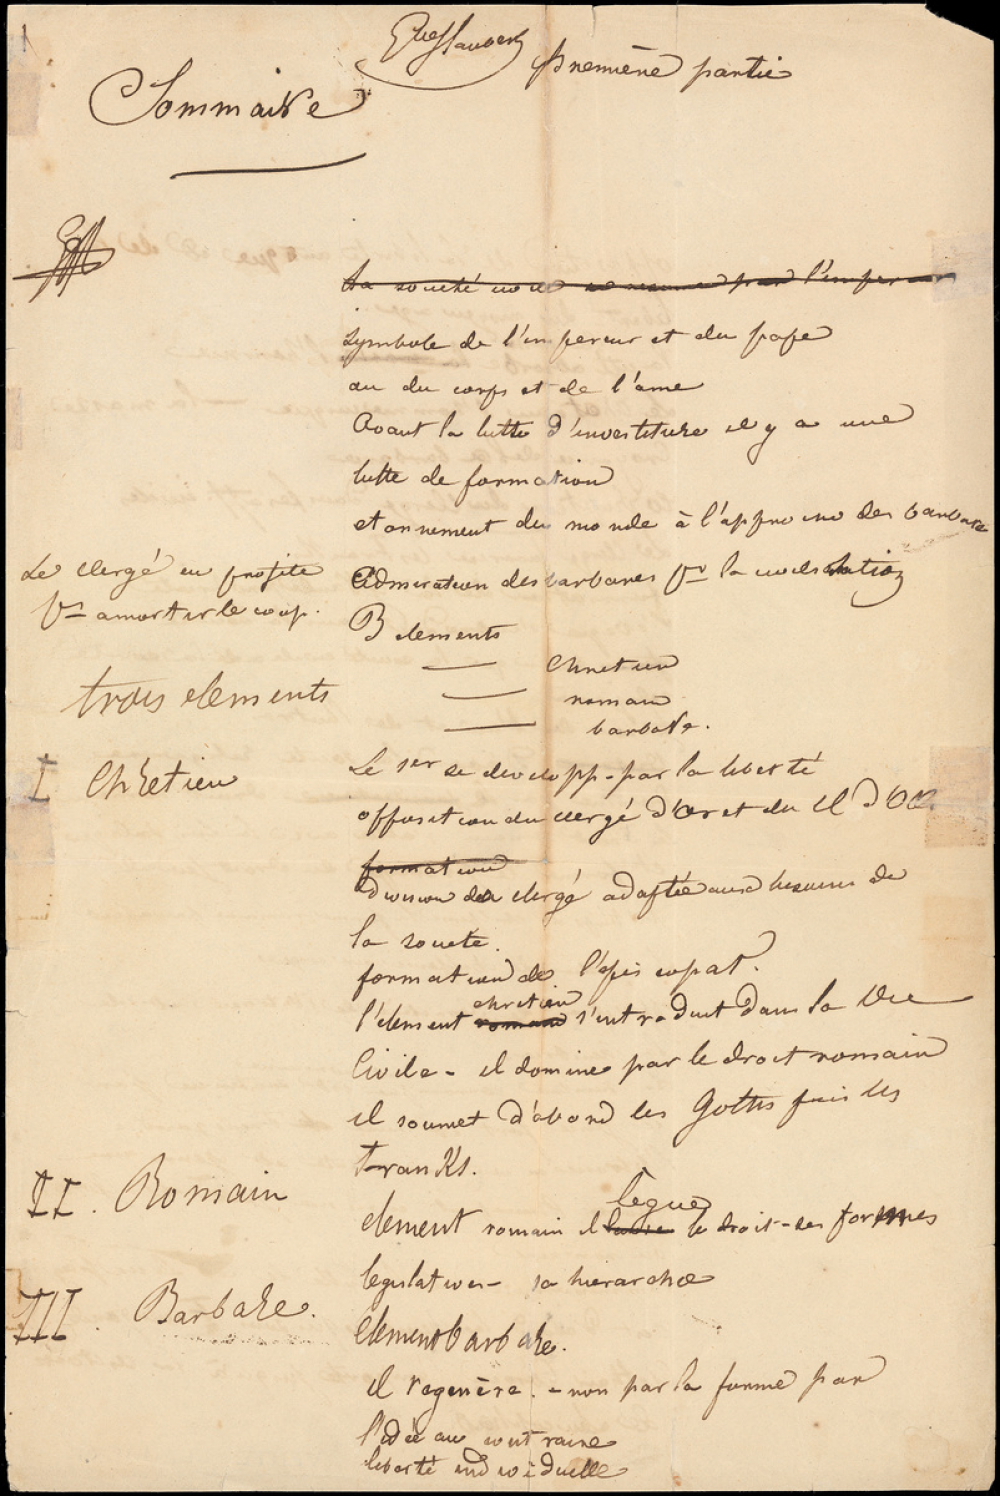 GveFlaubert
première partie
Sommaire
La société civile se résume par l'empereur
Symbole de l'empereur et du pape
ou du corps et de l'ame
Avant la lutte d'investiture il y a une
lutte de formation
etonnement du monde à l'approche des barbares
Le clergé en profite
pr amortir le coup.
Admiration des barbares pr la civilisation
3 elements
trois elements
chretien
romain
barbare.
I Chretien
Le 1er se developp. par la liberté
opposition du clergé d'Or et du cl d'Occ.
formation
division du clergé adaptée aux besoins de
la société.
formation de l'épiscopat.
chretien
l'element romain s'introduit dans la vie
Civile - il domine par le droit romain
il soumet d'abord les Goths puis les
franks.
II. Romain
legue
element romain il le droit - ses formes
legislatives - sa hierarchie
III. Barbare.
Element barbare.
il regenère. - non par la forme par
l'idée au contraire
liberté individuelle